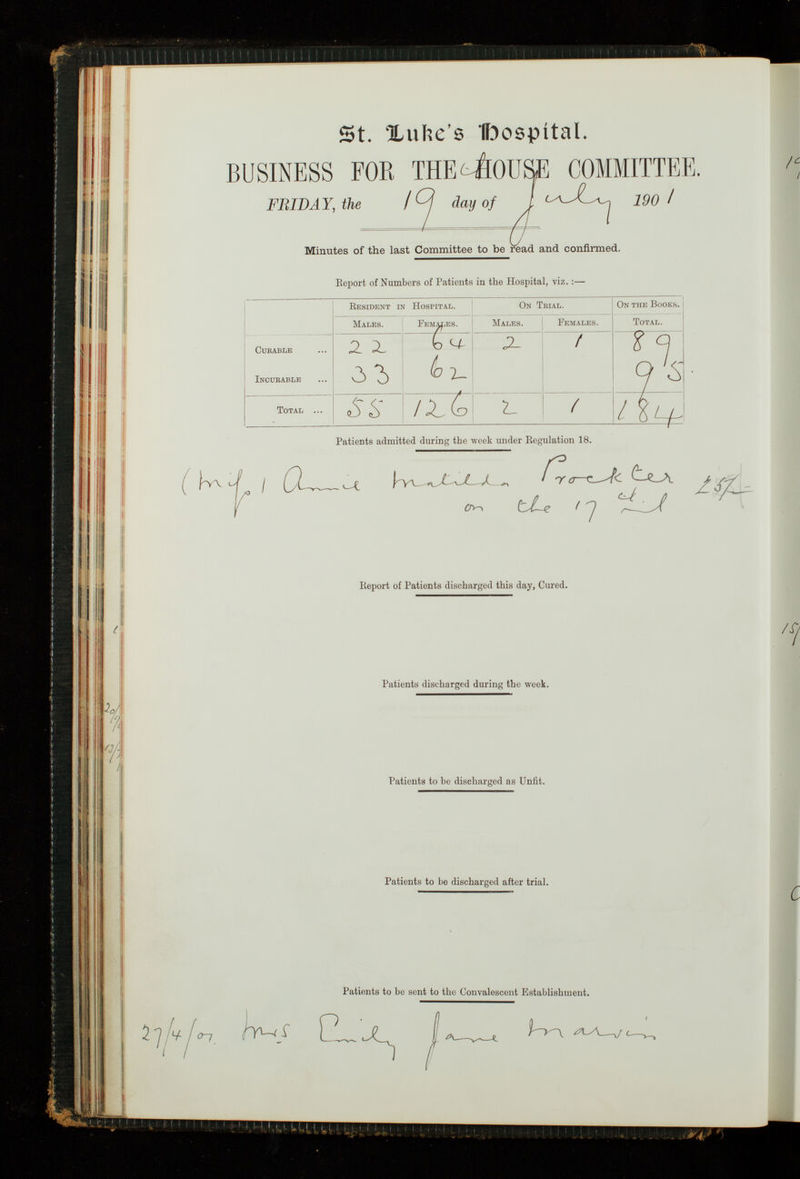 St. Luke's Hospital.
BUSINESS FOR THE HOUSE COMMITTEE.
FRIDAY, the 19 day of July 190 1
Minutes of the last Committee to be read and confirmed.
Report of Numbers of Patients in the Hospital, viz. :—
RESIDENT IN HOSPITAL. ON TRIAL. ON THE BOOKS.
MALES. FEMALES. MALES. FEMALES. TOTAL.
CURABLE ... 22 64 2 1 89
INCURABLE ... 33 62 95
TOTAL ... 55 126 2 1 184
Patients admitted during the week under Regulation 18.
Annie
on the 17
Report of Patients discharged this day, Cured.
Patients discharged during the week.
Patients to be discharged as Unfit.
Patients to be discharged after trial.
Patients to be sent to the Convalescent Establishment.
27/4/01. Mrs Emily Jane